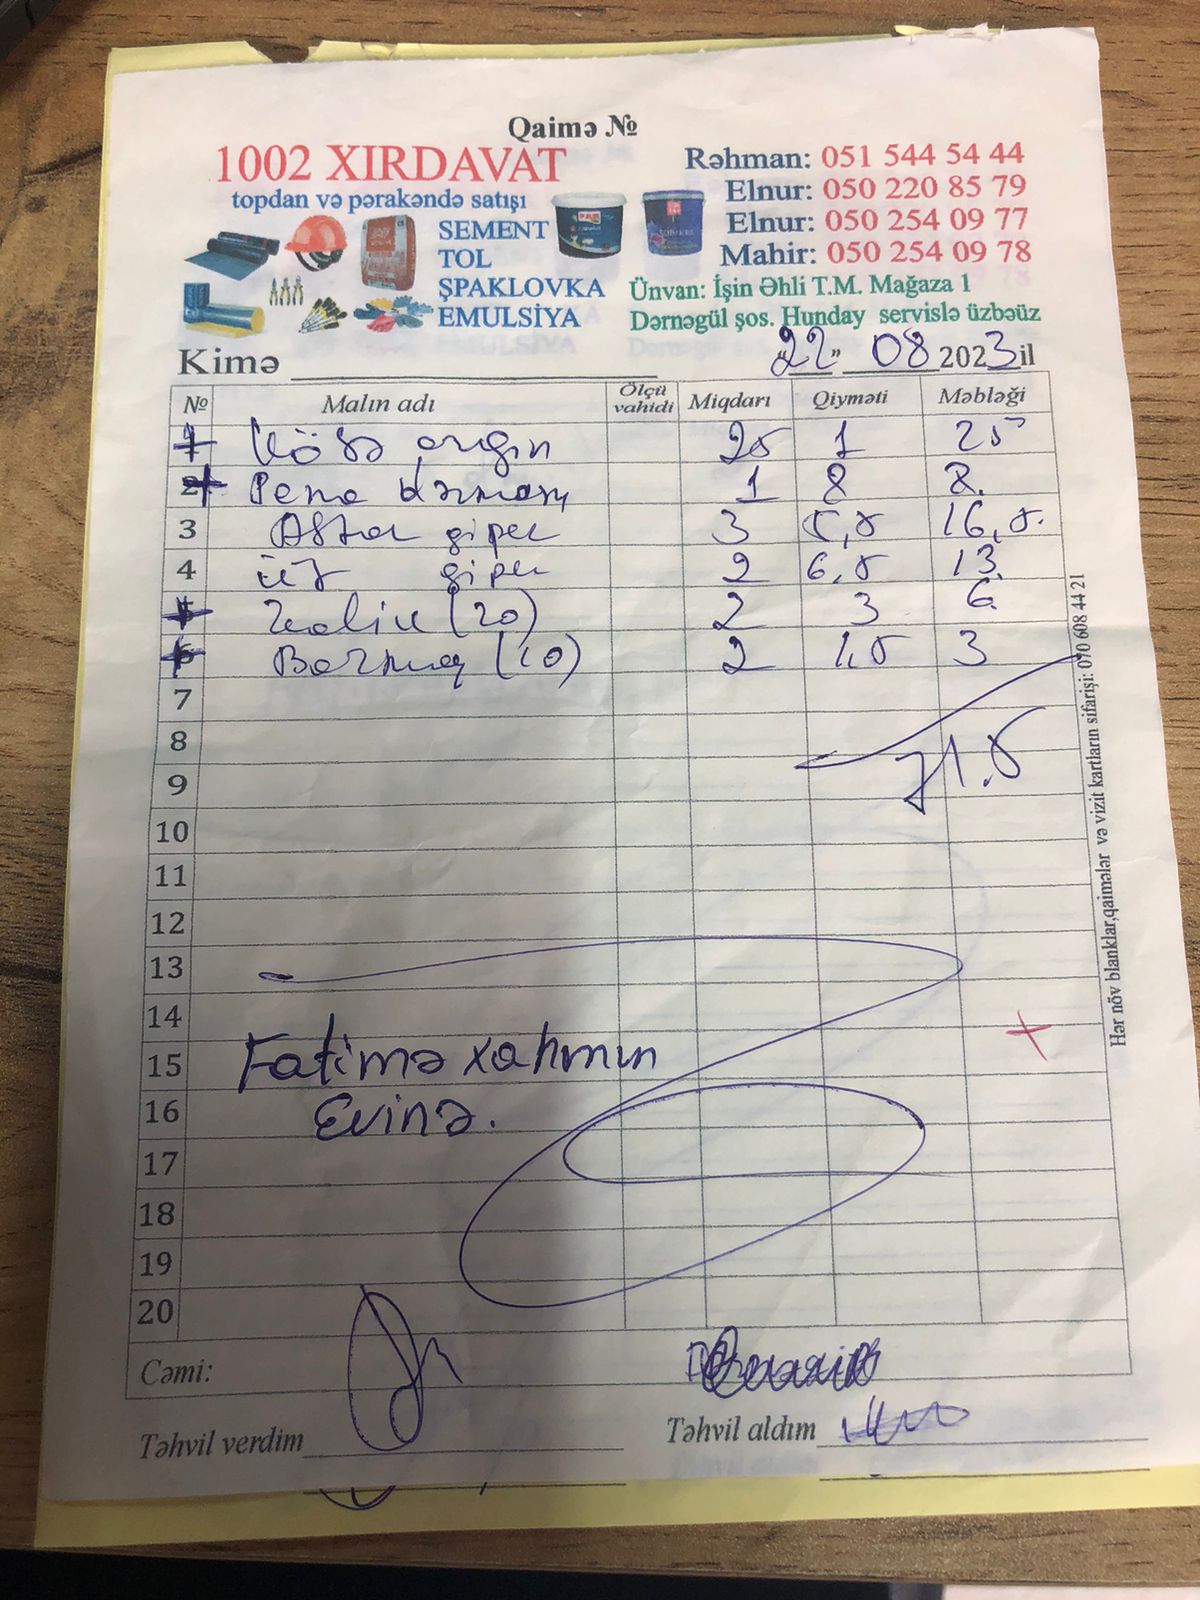 Qaimə №
1002 XIRDAVAT
topdan və pərakəndə satışı
SEMENT
TOL
ŞPAKLOVKA
EMULSİYA
Rəhman: 051 544 54 44
Elnur: 050 220 85 79
Elnur: 050 254 09 77
Mahir: 050 254 09 78
Ünvan: İşin Əhli T.M. Mağaza 1
Dərnəgül şos. Hunday servislə üzbəüz
Kimə "22" 08 2023 il
№ Malın adı Ölçü vahidi Miqdarı Qiyməti Məbləği
1 25 1 25
2 Pena 1 8 8.
3 Astar gipec 3 5,5 16,5.
4 üz gipec 2 6,5 13.
5 (20) 2 3 6.
6 Barmaq (10) 2 1,5 3
7
8
71.5
9
10
11
12
13
14
15 Fatimə xanımın
16 Evinə.
17
18
19
20
Cəmi:
Təhvil verdim
Təhvil aldım
Hər növ blanklar,qaimələr və vizit kartların sifarişi: 070 608 44 21